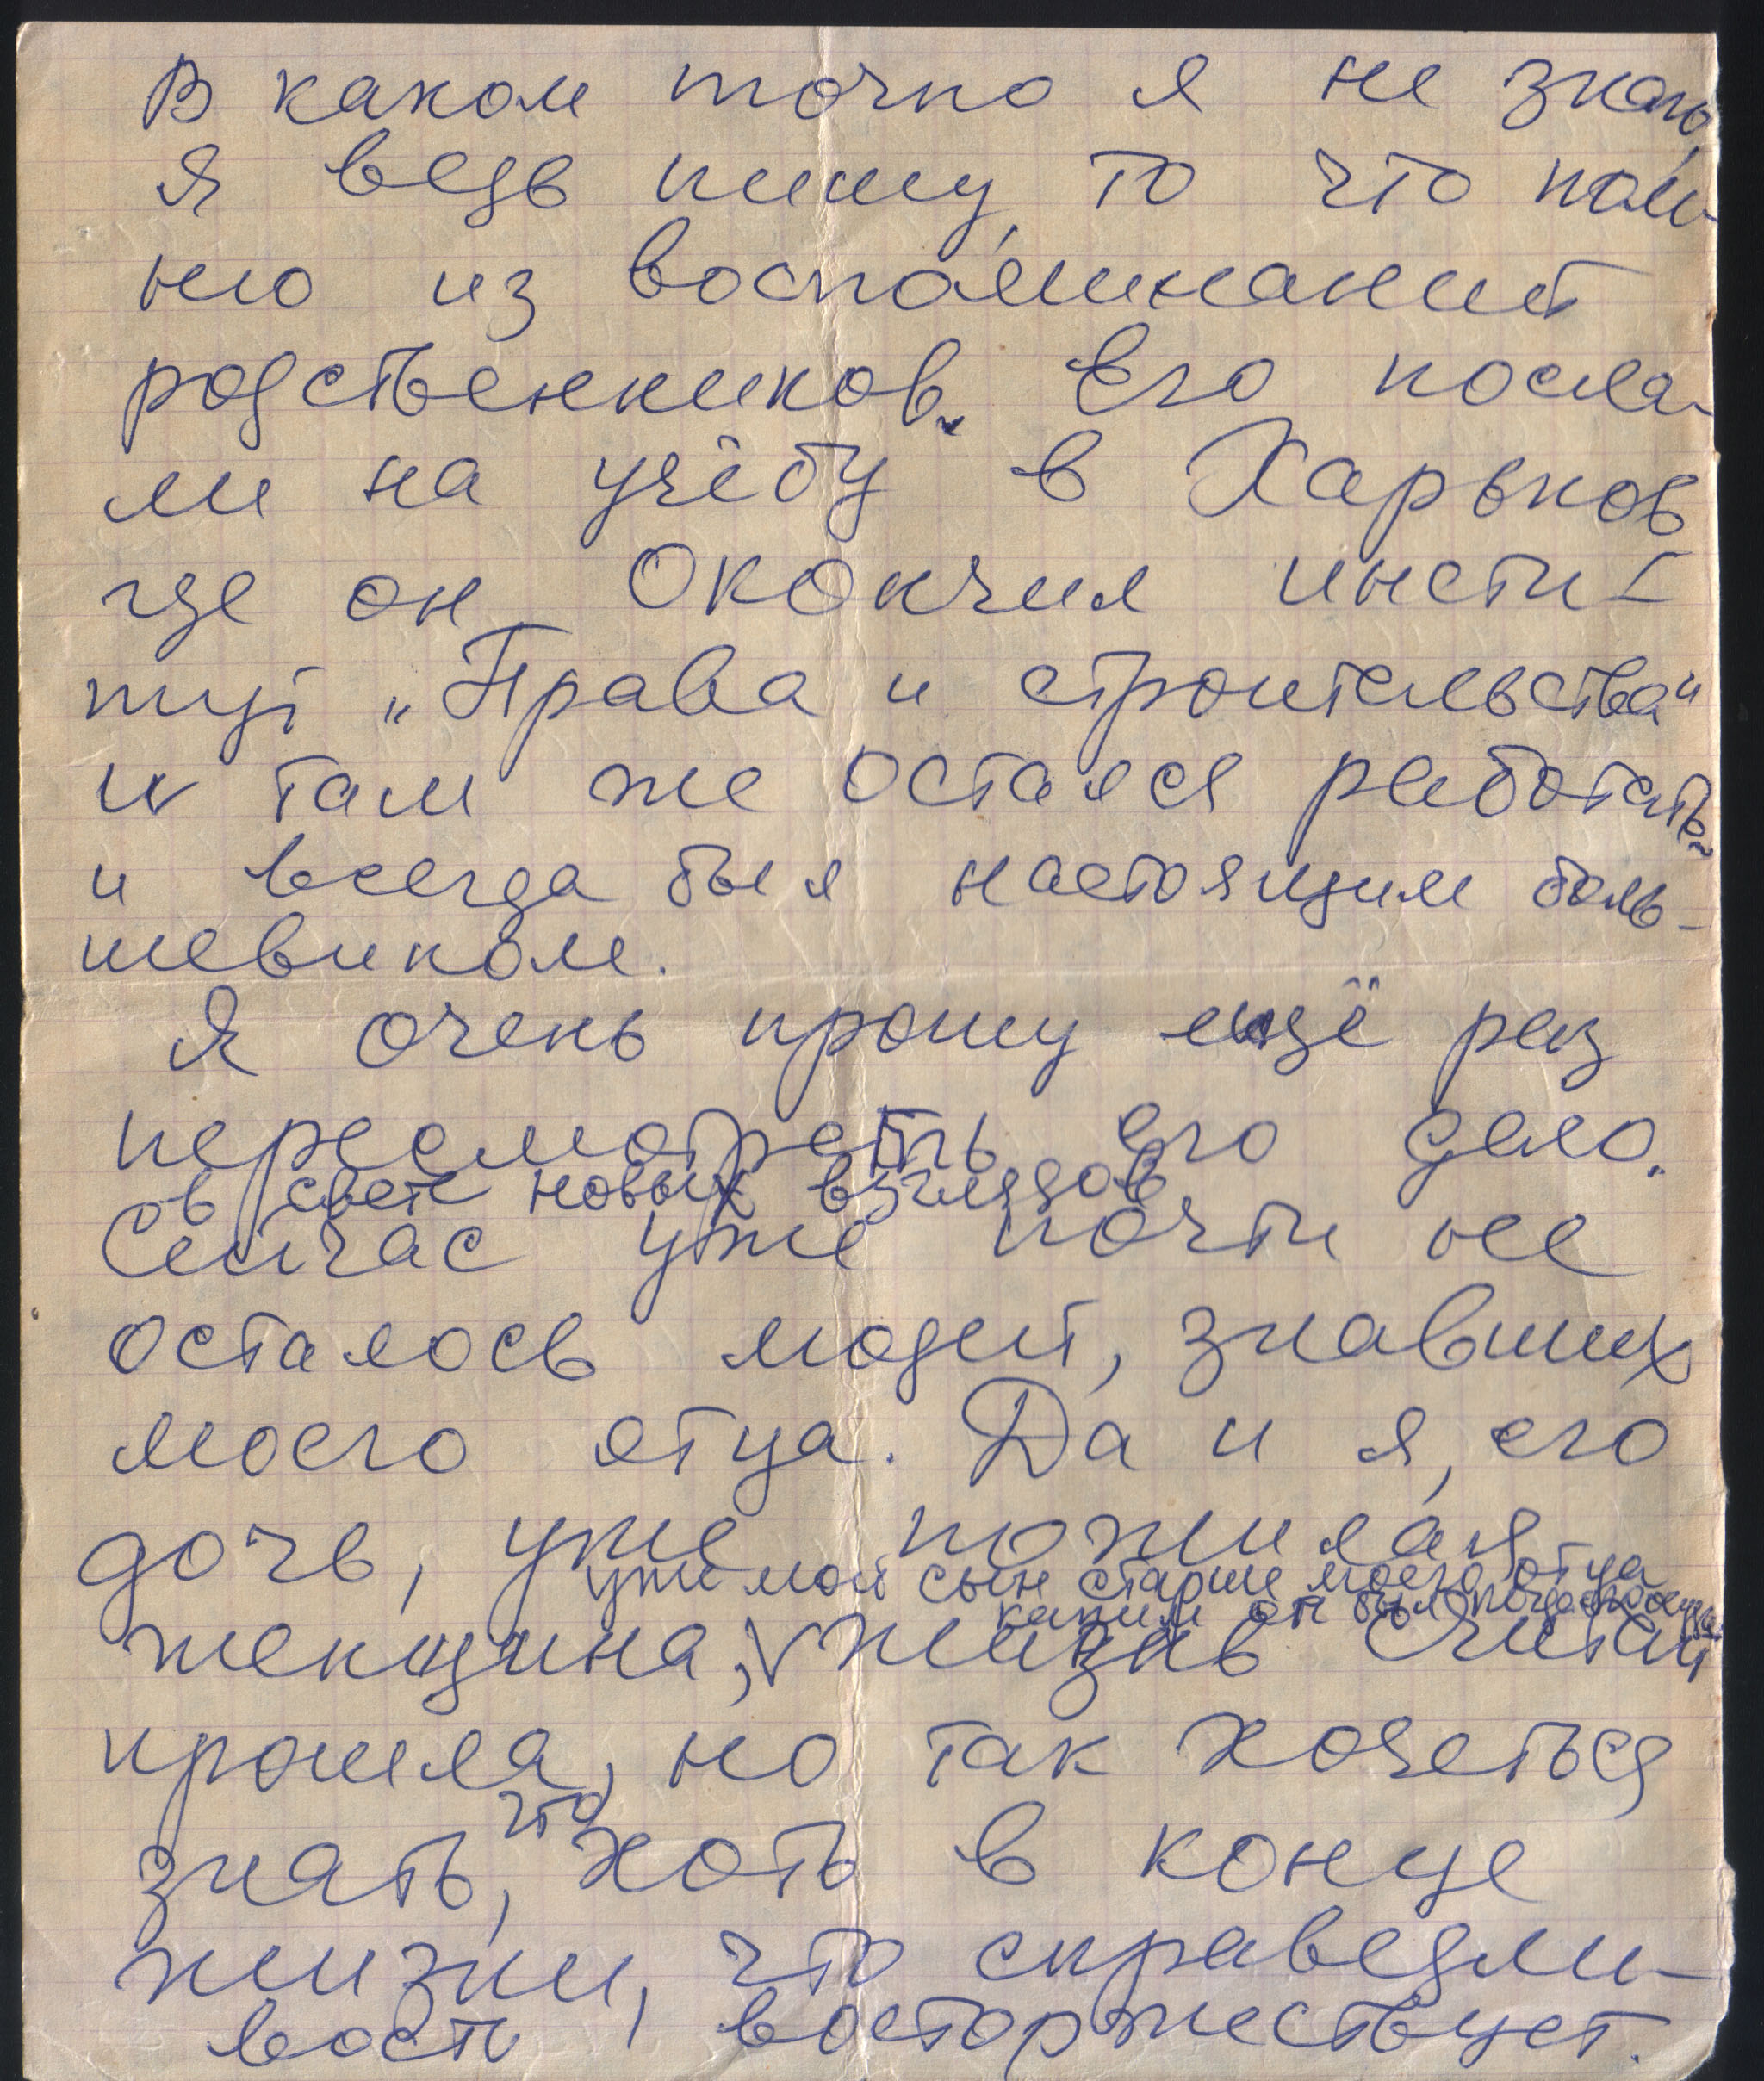 В каком точно я не знаю,
я ведь пишу, то что пом-
ню из воспоминаний
родственников. Его посла-
ли на учёбу в Харьков
где он окончил инсти-
тут „Права и строительства"
и там же остался работать
и всегда был настоящим боль-
шевиком.
Я очень прошу ещё раз
пересмотреть его дело.
в свете новых взглядов
Сейчас уже почти не
осталось людей, знавших
моего отца. Да и я, его
дочь, уже пожилая
уже мой сын старше моего отца
каким он был когда
женщина, жизнь считай
прошла, но так хочеться
что
знать, хоть в конце
жизни, что справедли-
вость восторжествует.